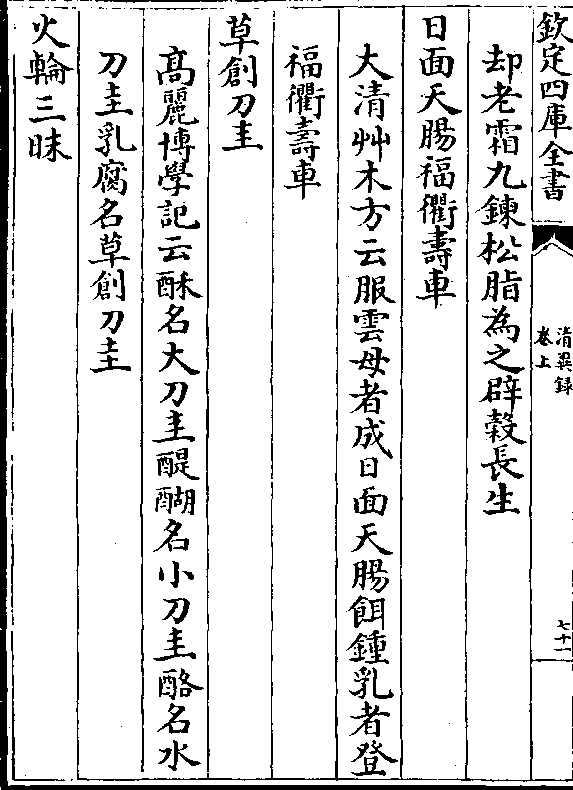 欽定四庫全書
清異録
卷上
七十一
却老霜九鍊松脂為之辟榖長生
日面天腸福衢壽車
大清艸木方云服雲母者成日面天腸餌鍾乳者登
福衢壽車
草創刀圭
髙麗博學記云酥名大刀圭醍醐名小刀圭酪名水
刀圭乳腐名草創刀圭
火輪三昧